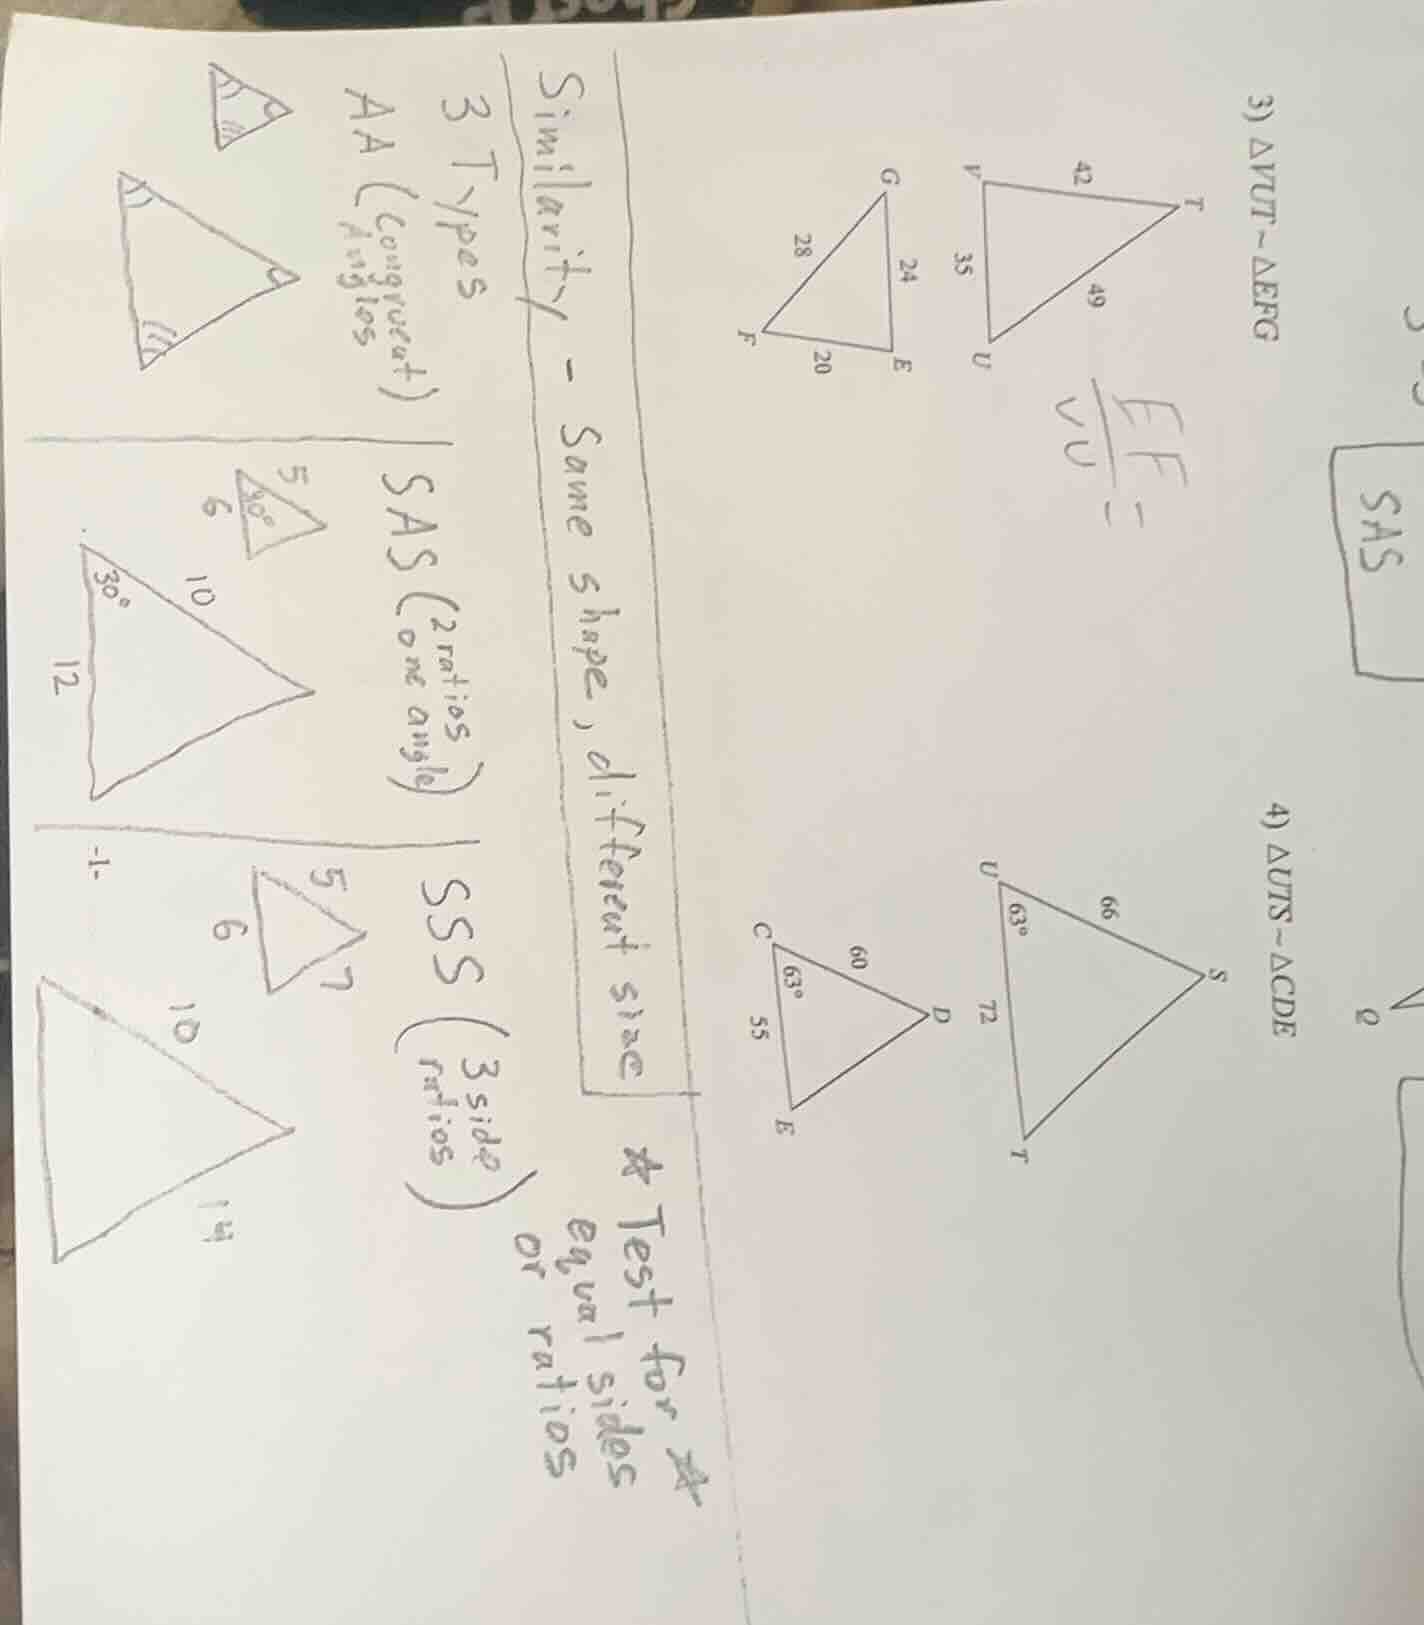 SAS
Q
3) △VUT ~ △EFG
T
42
49
V
35
U
EF
VU
=
G
24
E
28
20
F
4) △UTS ~ △CDE
S
66
U
63°
72
T
D
60
C
63°
55
E
Similarity - Same shape, different size
☆ Test for ☆
equal sides
or ratios
3 Types
AA (Congruent)
Angles
SAS (2 ratios
one angle)
5
6
10
30°
12
SSS (3 side
ratios)
5
7
6
10
14
-1-